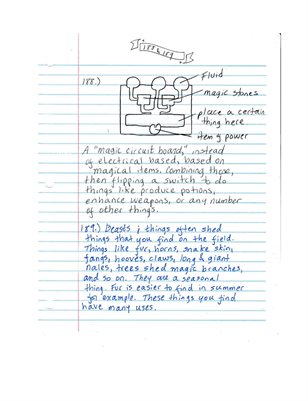 188 & 189
188.)
Fluid
magic stones
place a certain
thing here
item of power
A "magic circuit board," instead
of electrical based, based on
magical items. Combining those,
then flipping a switch to do
things like produce potions,
enhance weapons, or any number
of other things.
189.) Beasts & things often shed
things that you find on the field.
Things like fur, horns, snake skin,
fangs, hooves, claws, long & giant
nales, trees shed magic branches,
and so on. They are a seasonal
thing. Fur is easier to find in summer
for example. These things you find
have many uses.